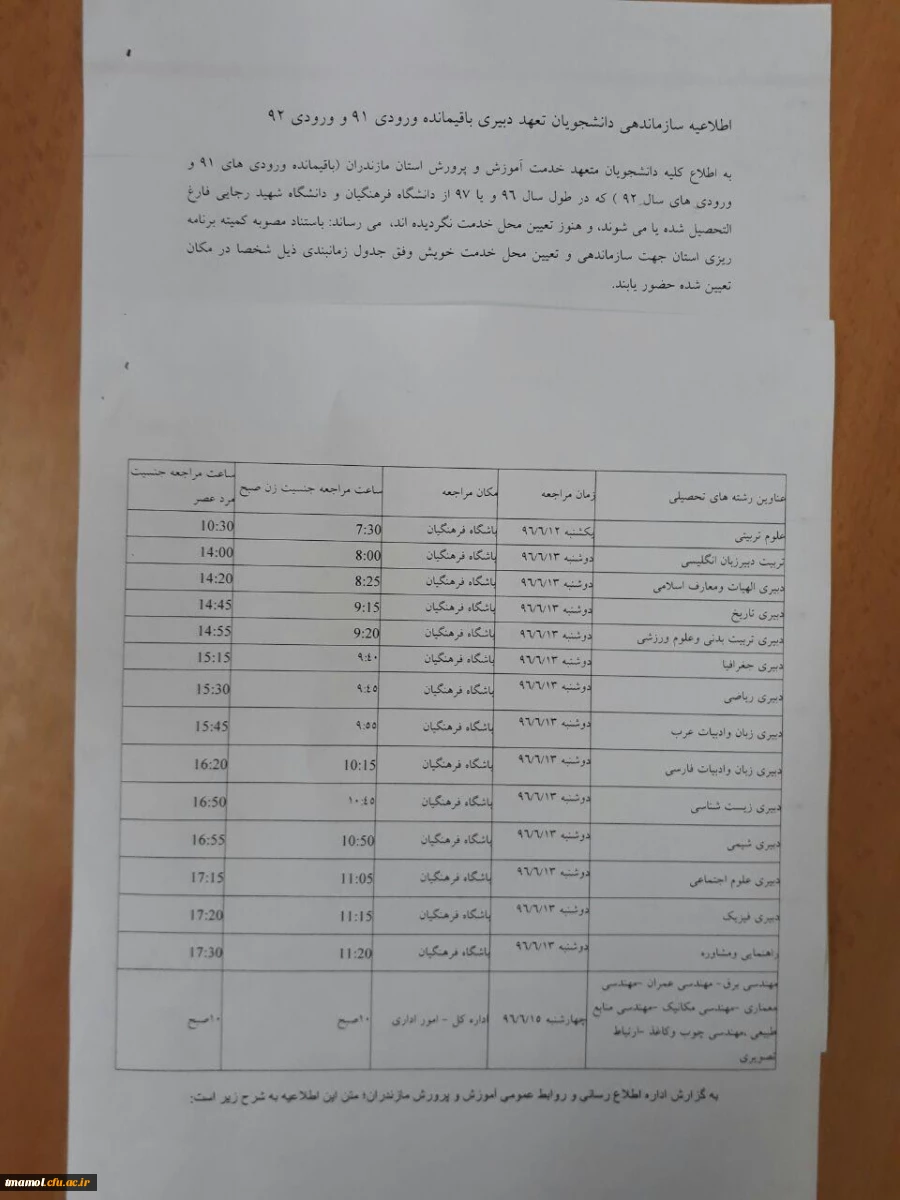 اطلاعیه سازماندهی دانشجویان تعهد دبیری باقیمانده ورودی ۹۱ و ورودی ۹۲
به اطلاع کلیه دانشجویان متعهد خدمت آموزش و پرورش استان مازندران (باقیمانده ورودی های ۹۱ و
ورودی های سال ۹۲ ) که در طول سال ۹۶ و یا ۹۷ از دانشگاه فرهنگیان و دانشگاه شهید رجایی فارغ
التحصیل شده یا می شوند، و هنوز تعیین محل خدمت نگردیده اند، می رساند: باستناد مصوبه کمیته برنامه
ریزی استان جهت سازماندهی و تعیین محل خدمت خویش وفق جدول زمانبندی ذیل شخصا در مکان
تعیین شده حضور یابند.
عناوین رشته های تحصیلی زمان مراجعه مکان مراجعه ساعت مراجعه جنسیت زن صبح ساعت مراجعه جنسیت
مرد عصر
علوم تربیتی یکشنبه ۹۶/۶/۱۲ باشگاه فرهنگیان 7:30 10:30
تربیت دبیرزبان انگلیسی دوشنبه ۹۶/۶/۱۳ باشگاه فرهنگیان 8:00 14:00
دبیری الهیات ومعارف اسلامی دوشنبه ۹۶/۶/۱۳ باشگاه فرهنگیان 8:25 14:20
دبیری تاریخ دوشنبه ۹۶/۶/۱۳ باشگاه فرهنگیان 9:15 14:45
دبیری تربیت بدنی وعلوم ورزشی دوشنبه ۹۶/۶/۱۳ باشگاه فرهنگیان 9:20 14:55
دبیری جغرافیا دوشنبه ۹۶/۶/۱۳ باشگاه فرهنگیان ۹:٤٠ 15:15
دبیری ریاضی دوشنبه ۹۶/۶/۱۳ باشگاه فرهنگیان ۹:٤٥ 15:30
دبیری زبان وادبیات عرب دوشنبه ۹۶/۶/۱۳ باشگاه فرهنگیان ۹:٥٥ 15:45
دبیری زبان وادبیات فارسی دوشنبه ۹۶/۶/۱۳ باشگاه فرهنگیان 10:15 16:20
دبیری زیست شناسی دوشنبه ۹۶/۶/۱۳ باشگاه فرهنگیان ۱۰:٤٥ 16:50
دبیری شیمی دوشنبه ۹۶/۶/۱۳ باشگاه فرهنگیان 10:50 16:55
دبیری علوم اجتماعی دوشنبه ۹۶/۶/۱۳ باشگاه فرهنگیان 11:05 17:15
دبیری فیزیک دوشنبه ۹۶/۶/۱۳ باشگاه فرهنگیان 11:15 17:20
راهنمایی ومشاوره دوشنبه ۹۶/۶/۱۳ باشگاه فرهنگیان 11:20 17:30
مهندسی برق- مهندسی عمران -مهندسی
معماری -مهندسی مکانیک -مهندسی منابع
طبیعی ،مهندسی چوب وکاغذ -ارتباط
تصویری
چهارشنبه ۹۶/۶/۱۵ اداره کل - امور اداری ۱۰صبح ۱۰صبح
به گزارش اداره اطلاع رسانی و روابط عمومی آموزش و پرورش مازندران؛ متن این اطلاعیه به شرح زیر است:
tmamol.cfu.ac.ir